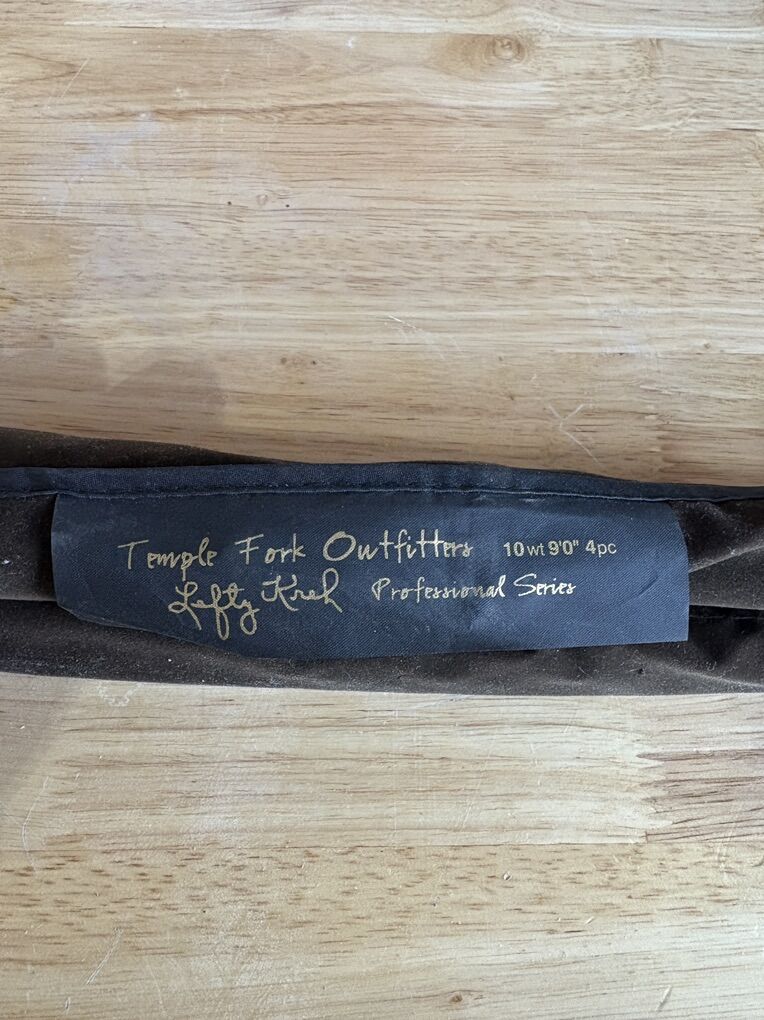 Temple Fork Outfitters 10 wt 9'0" 4pc
Lefty Kreh Professional Series